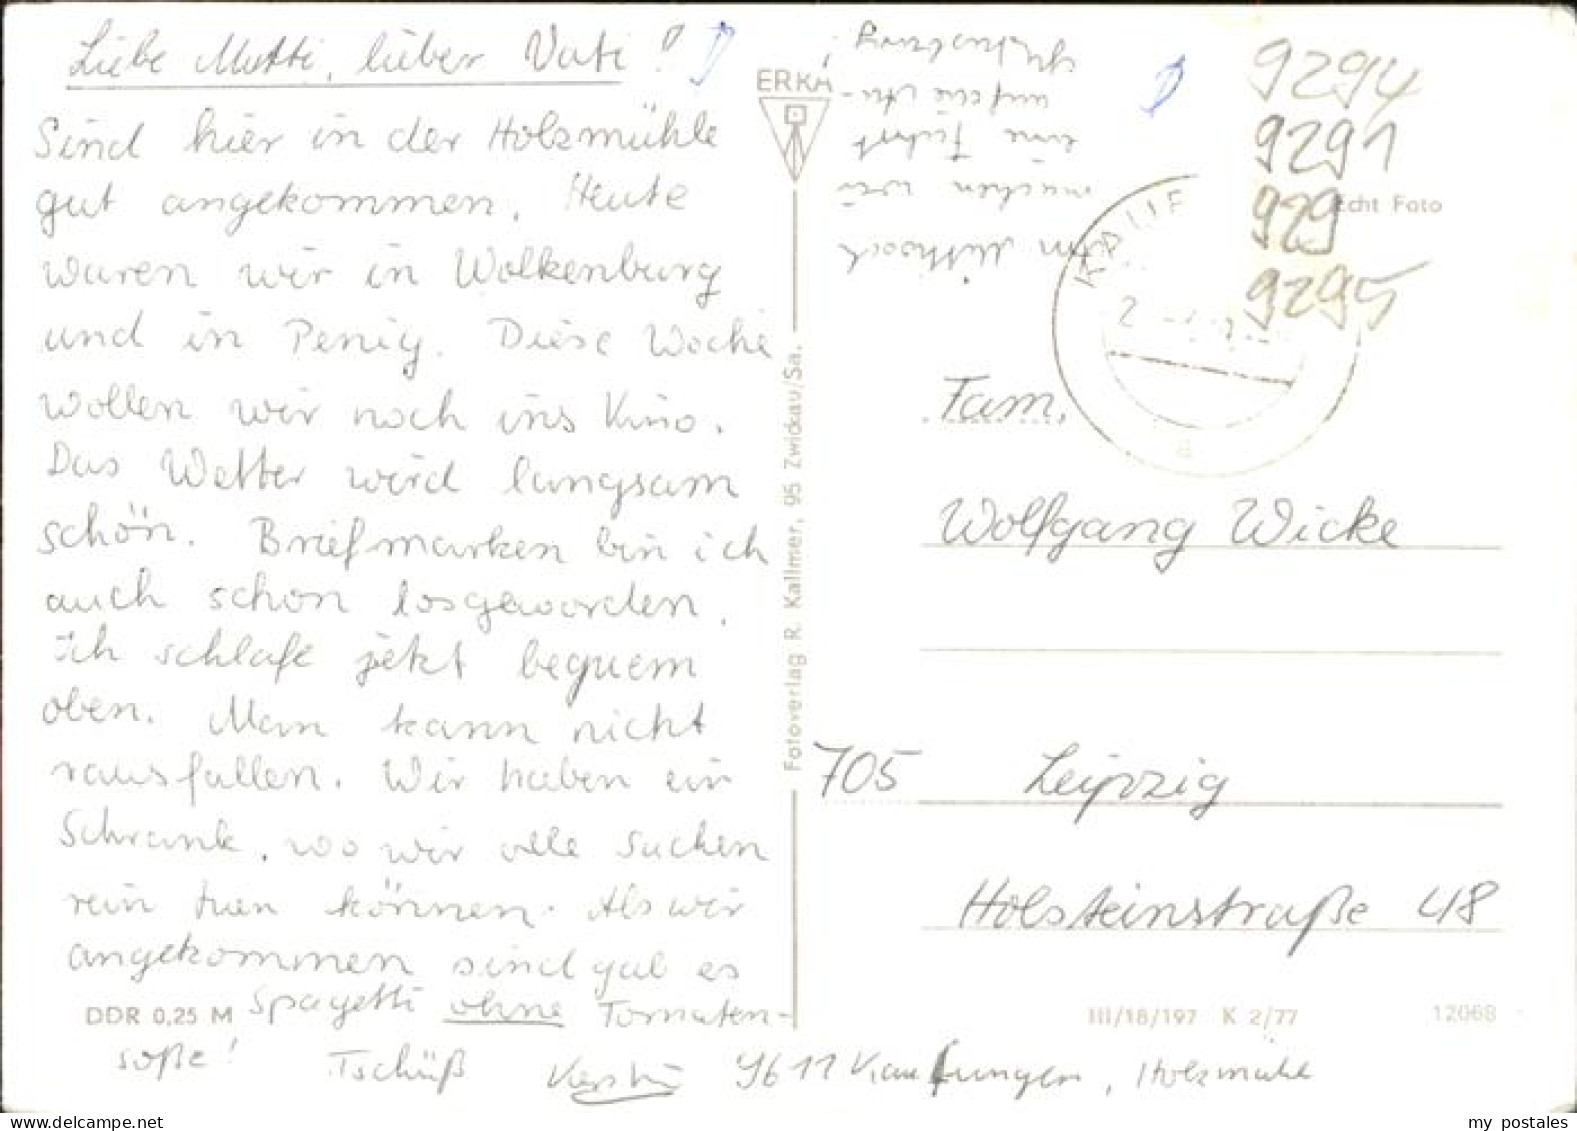 Liebe Mutti, lieber Vati!
Sind hier in der Holzmühle
gut angekommen. Heute
waren wir in Wolkenburg
und in Penig. Diese Woche
wollen wir noch ins Kino.
Das Wetter wird langsam
schön. Briefmarken bin ich
auch schon losgeworden.
Ich schlafe jetzt bequem
oben. Man kann nicht
rausfallen. Wir haben ein
Schrank, wo wir alle Sachen
rein tuen können. Als wir
angekommen sind gab es
Spagetti ohne Tomaten-
soße! Tschüß Kerstin
9611 Kaufungen, Holzmühle
Am Mittwoch
machen wir
eine Fahrt
auf die Au-
gustusburg!
DDR 0,25 M
ERKA
Fotoverlag R. Kallmer, 95 Zwickau/Sa.
9294
9291
929
9295
Echt Foto
Fam.
Wolfgang Wicke
705 Leipzig
Holsteinstraße 48
III/18/197 K 2/77
12068
my postales